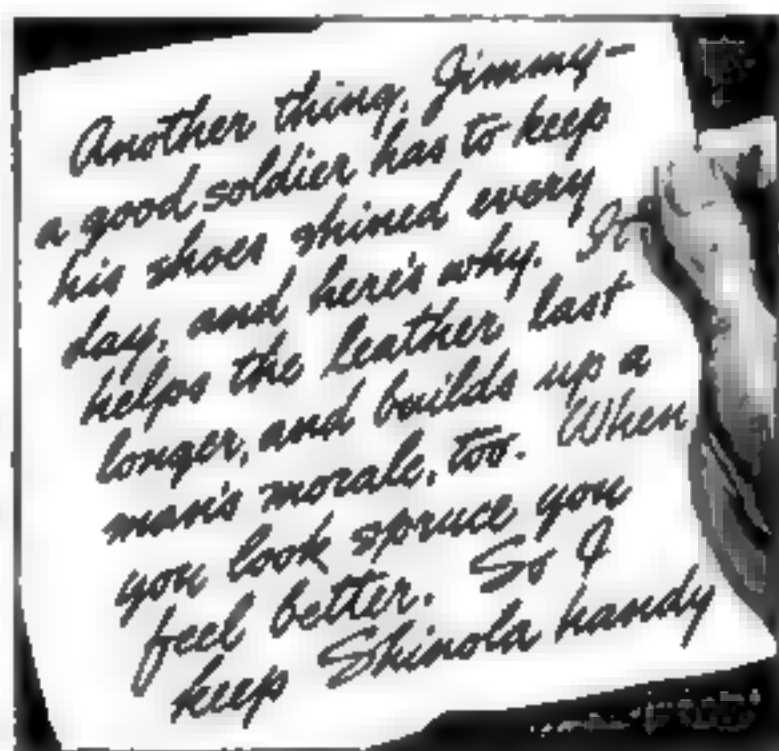 Another thing, Jimmy—
a good soldier has to keep
his shoes shined every
day, and here's why. It
helps the leather last
longer, and builds up a
man's morale, too. When
you look spruce you
feel better. So I
keep Shinola handy